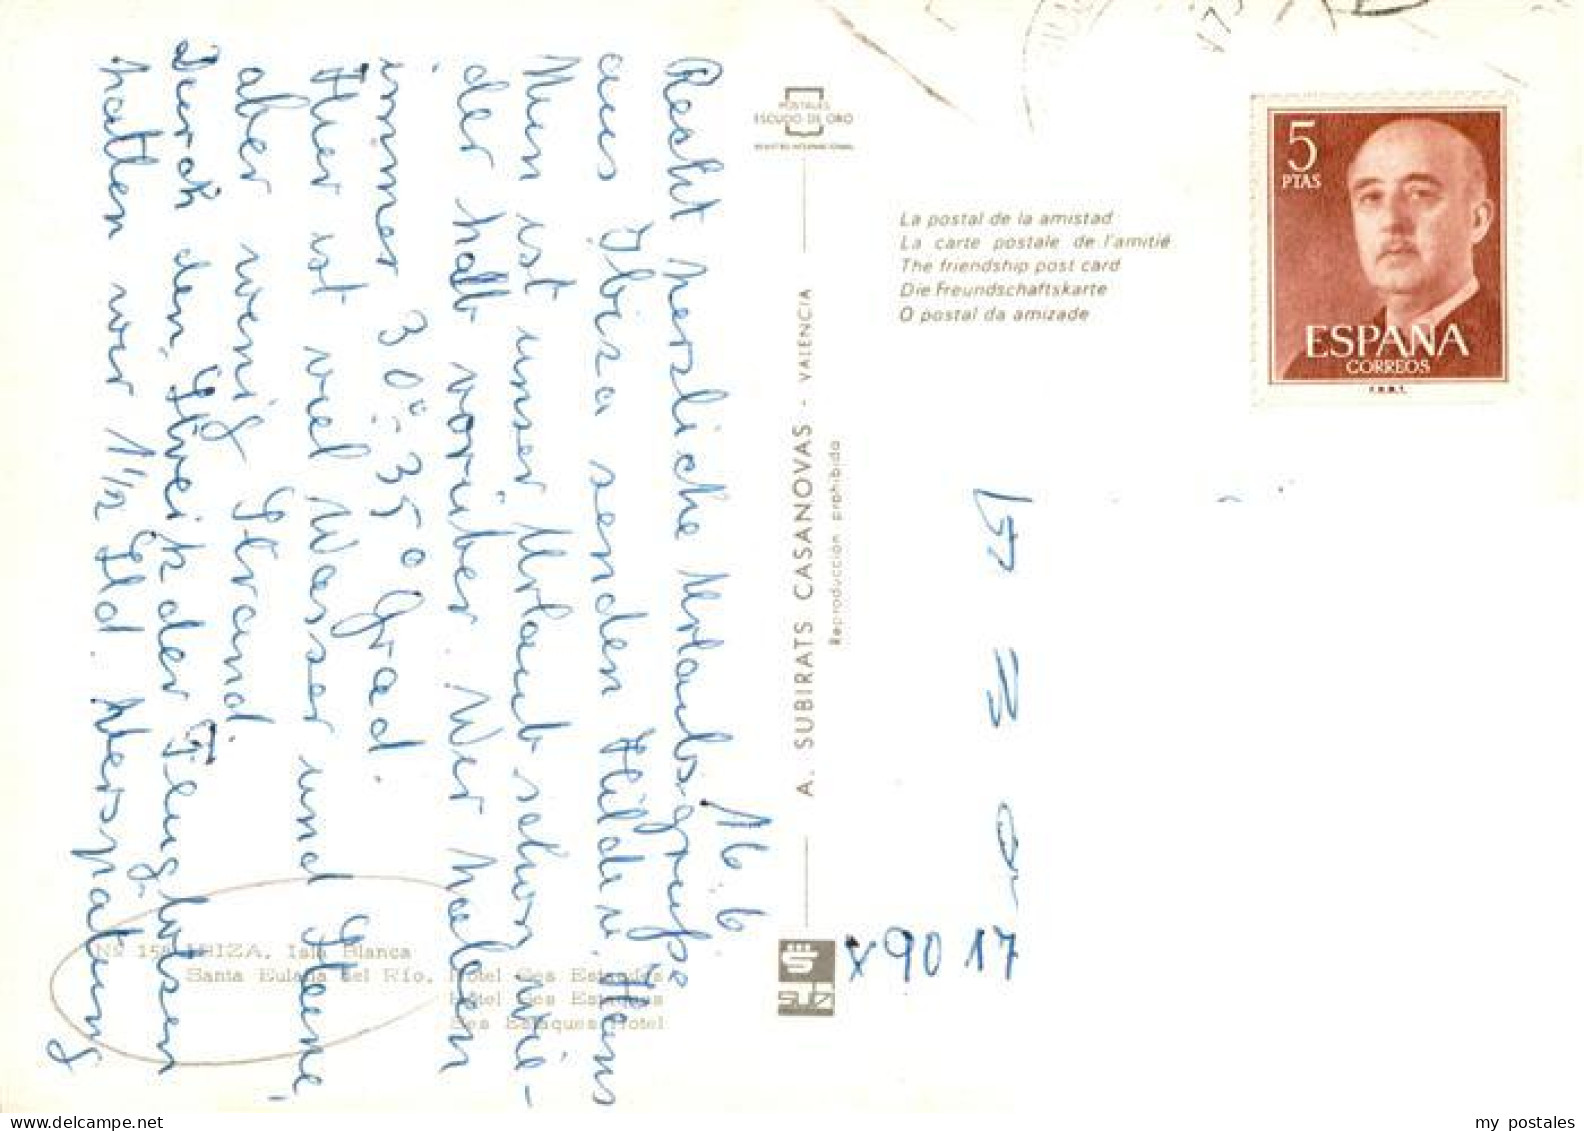 16.6.
Recht herzliche Urlaubsgrüße
aus Ibiza senden Hilde u. Hans
Nun ist unser Urlaub schon wie-
der halb vorüber. Wir haben
immer 30°-35° Grad.
Hier ist viel Wasser und Steine,
aber wenig Strand.
Durch den Streik der Fluglotsen
hatten wir 1 1/2 Std. Verspätung
Nº 15 IBIZA. Isla Blanca
Santa Eulalia del Río. Hotel Ses Estaques
Hôtel Ses Estaques
Ses Estaques Hotel
POSTALES
ESCUDO DE ORO
REGISTRO INTERNACIONAL
A. SUBIRATS CASANOVAS - VALENCIA
Reproducción prohibida
subi
La postal de la amistad
La carte postale de l'amitié
The friendship post card
Die Freundschaftskarte
O postal da amizade
5
PTAS
ESPAÑA
CORREOS
F.N.M.T.
x9017
my postales